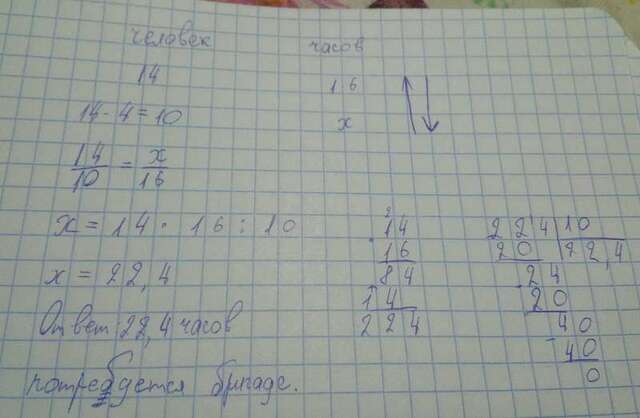 человек часов
14 16
14-4=10 x
14/10 = x/16
x = 14 · 16 : 10
x = 22,4
Ответ: 22,4 часов
потребуется бригаде.
2
14
· 16
84
14
224
224 10
20 22,4
- 24
20
- 40
40
0